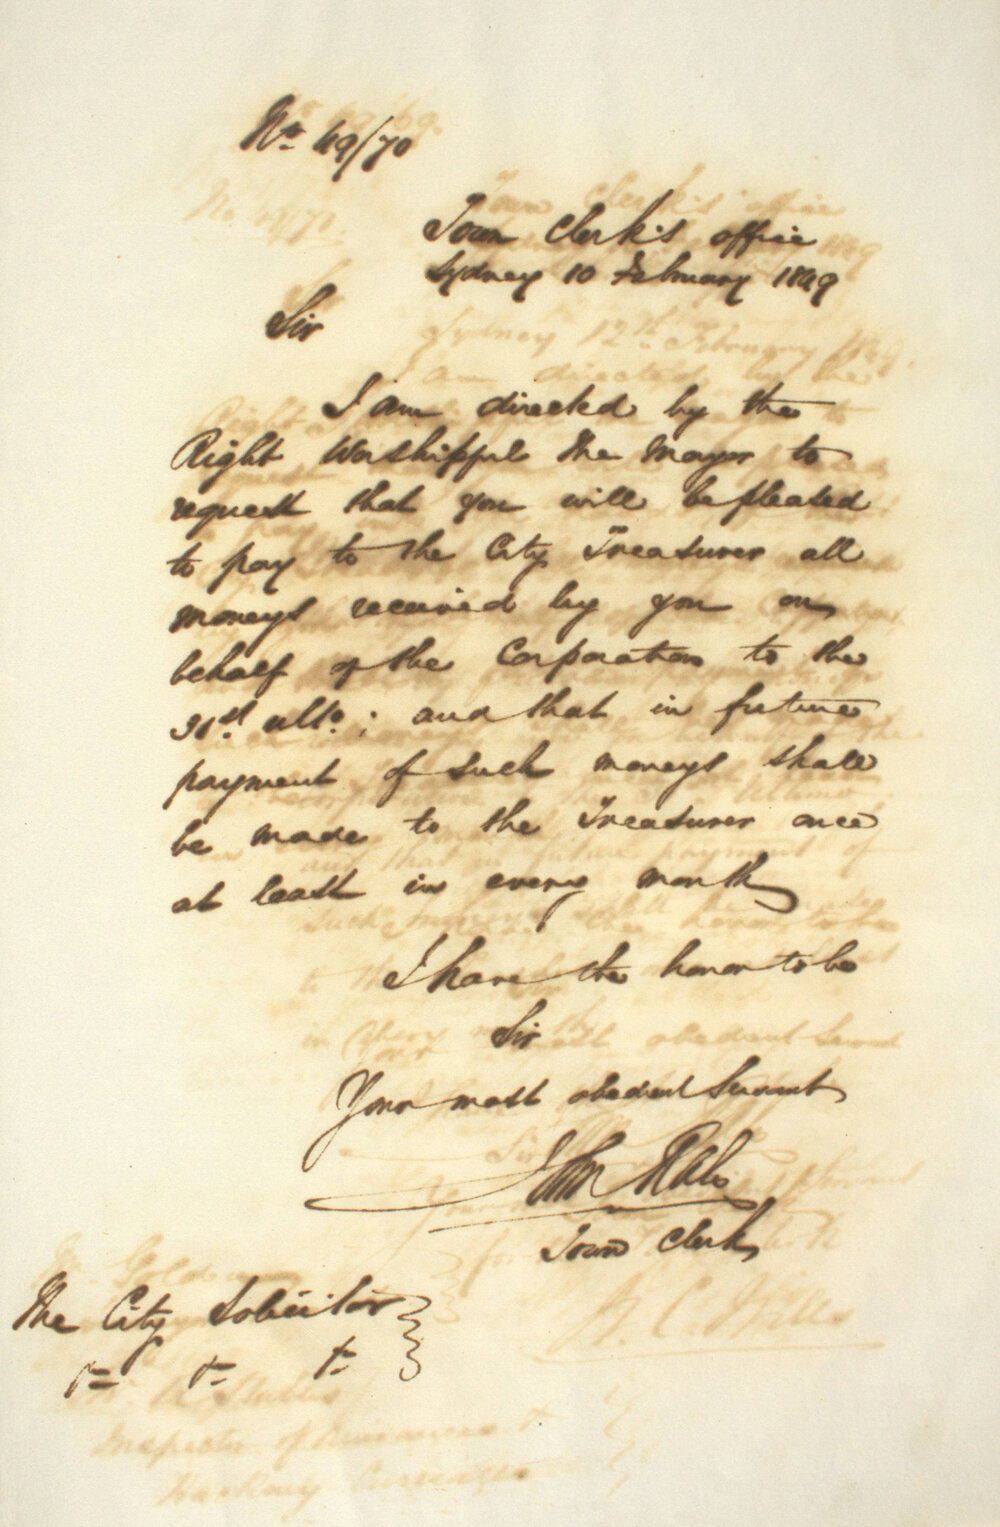 No. 49/70
Town Clerk's office
Sydney 10 February 1849
Sir
I am directed by the
Right Worshipful the Mayor to
request that you will be pleased
to pay to the City Treasurer all
moneys received by you on
behalf of the Corporation to the
31st ulto; and that in future
payment of such moneys shall
be made to the Treasurer once
at least in every month
I have the honor to be
Sir
Your most obedient Servant
John Rae
Town Clerk
The City Solicitor